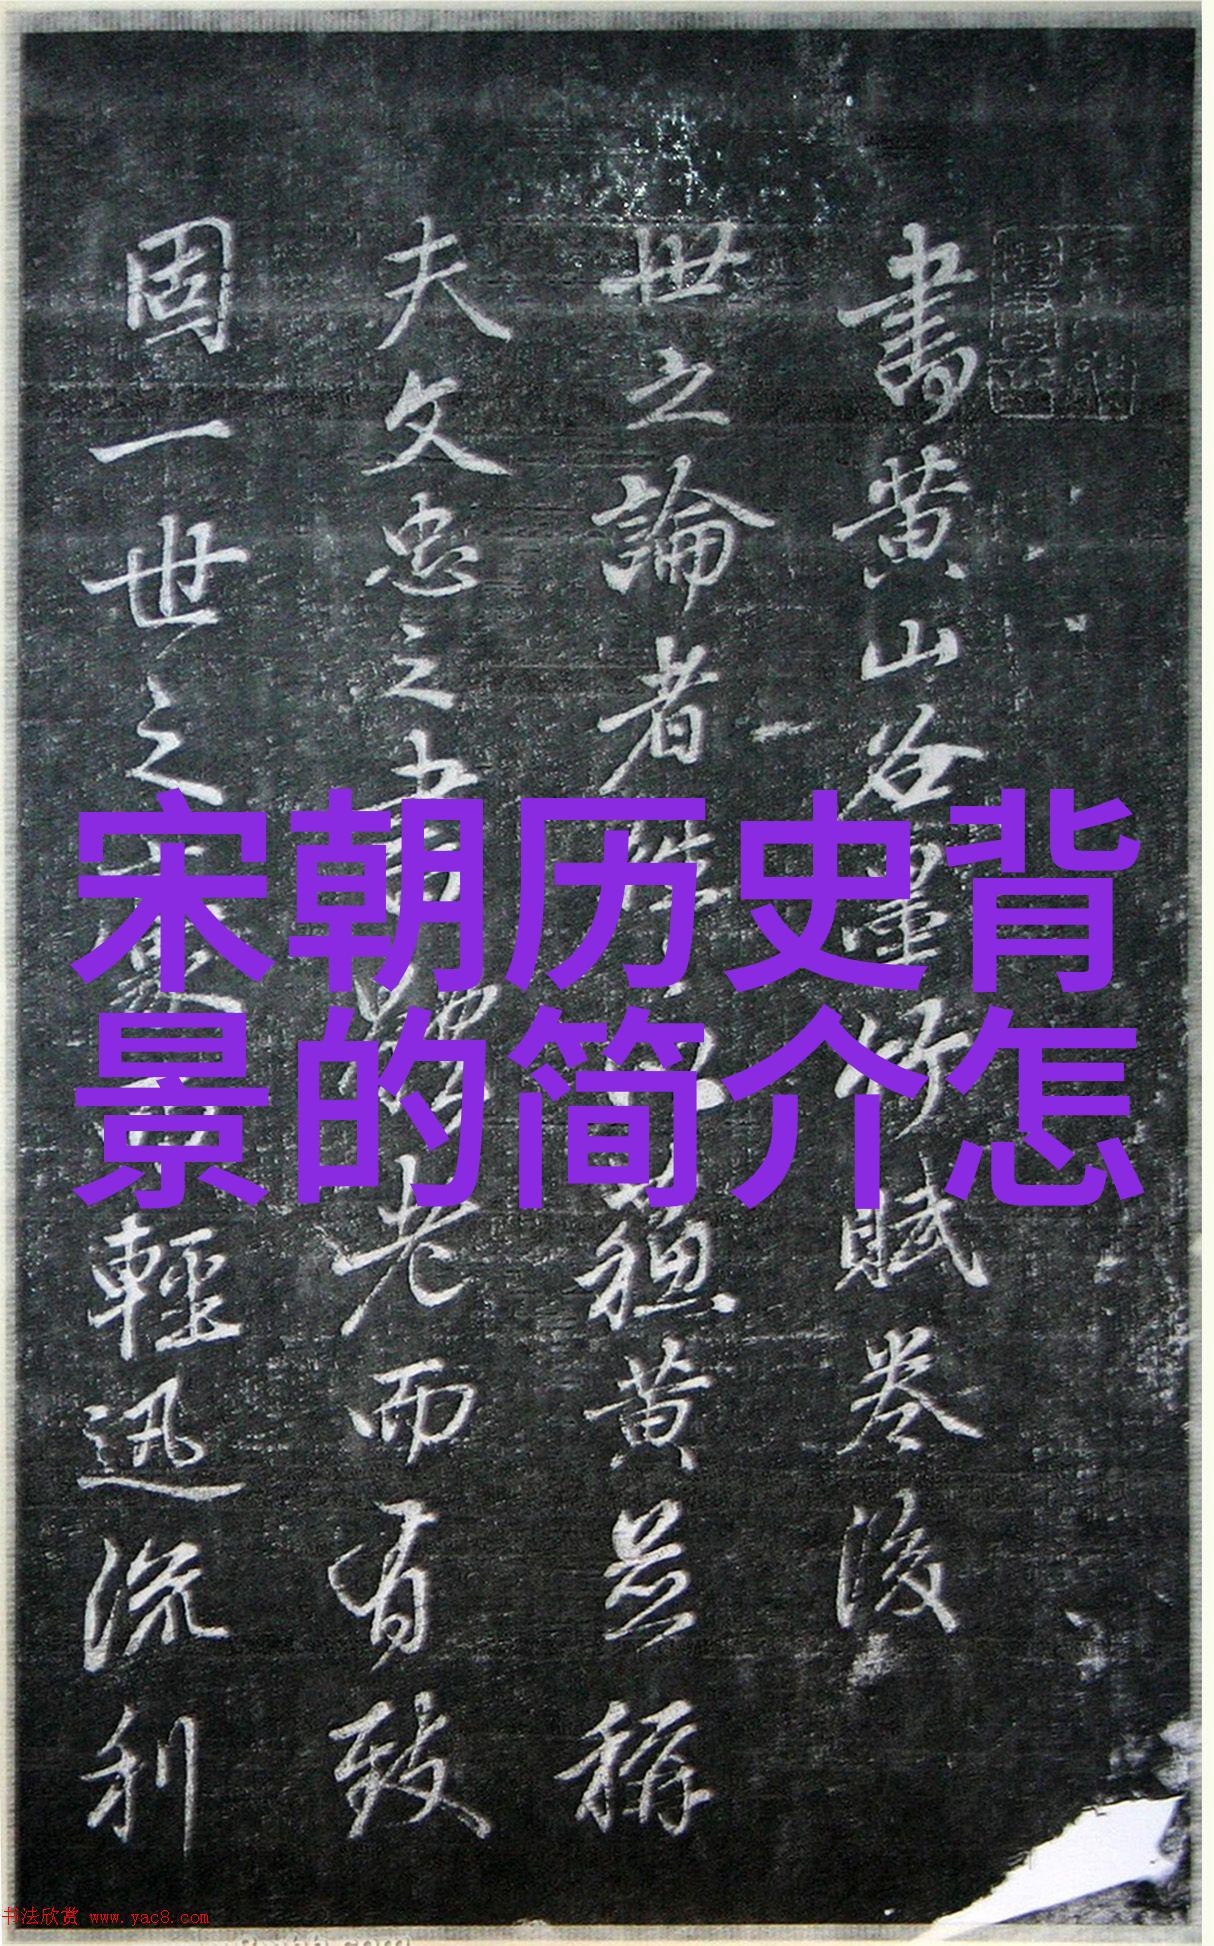 宋朝历史背
景的简介怎
書黄山谷墨竹賦卷後
世之論者蘇黄並稱
夫文忠之書老而有致
固一世之輕迅流利
书法欣赏 www.yac8.com